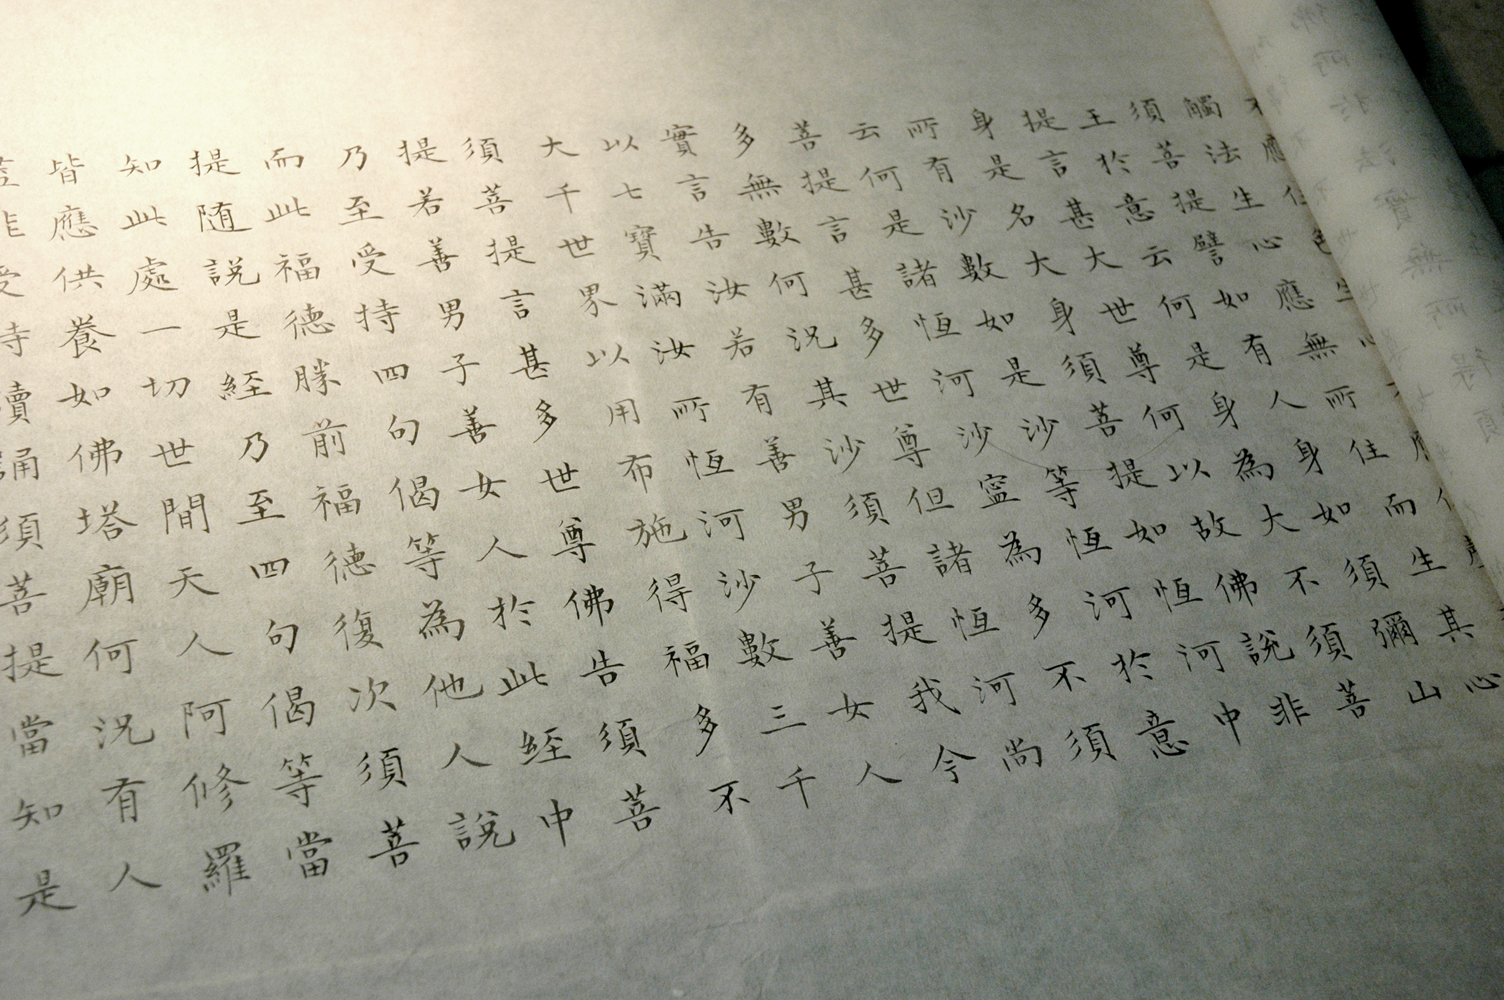 應住色生
觸法生心應無所住而生其心
須菩提譬如有人身如須彌山
王於意云何是身為大不須菩
提言甚大世尊何以故佛說非
身是名大身須菩提如恆河中
所有沙數如是沙等恆河於意
云何是諸恆河沙寧為多不須
菩提言甚多世尊但諸恆河尚
多無數何況其沙須菩提我今
實言告汝若有善男子善女人
以七寶滿汝所恆河沙數三千
大千世界以用布施得福多不
須菩提言甚多世尊佛告須菩
提若善男子善女人於此経中
乃至受持四句偈等為他人說
而此福德勝前福德復次須菩
提随說是経乃至四句偈等當
知此處一切世間天人阿修羅
皆應供養如佛塔廟何況有人
受持讀誦須菩提當知是